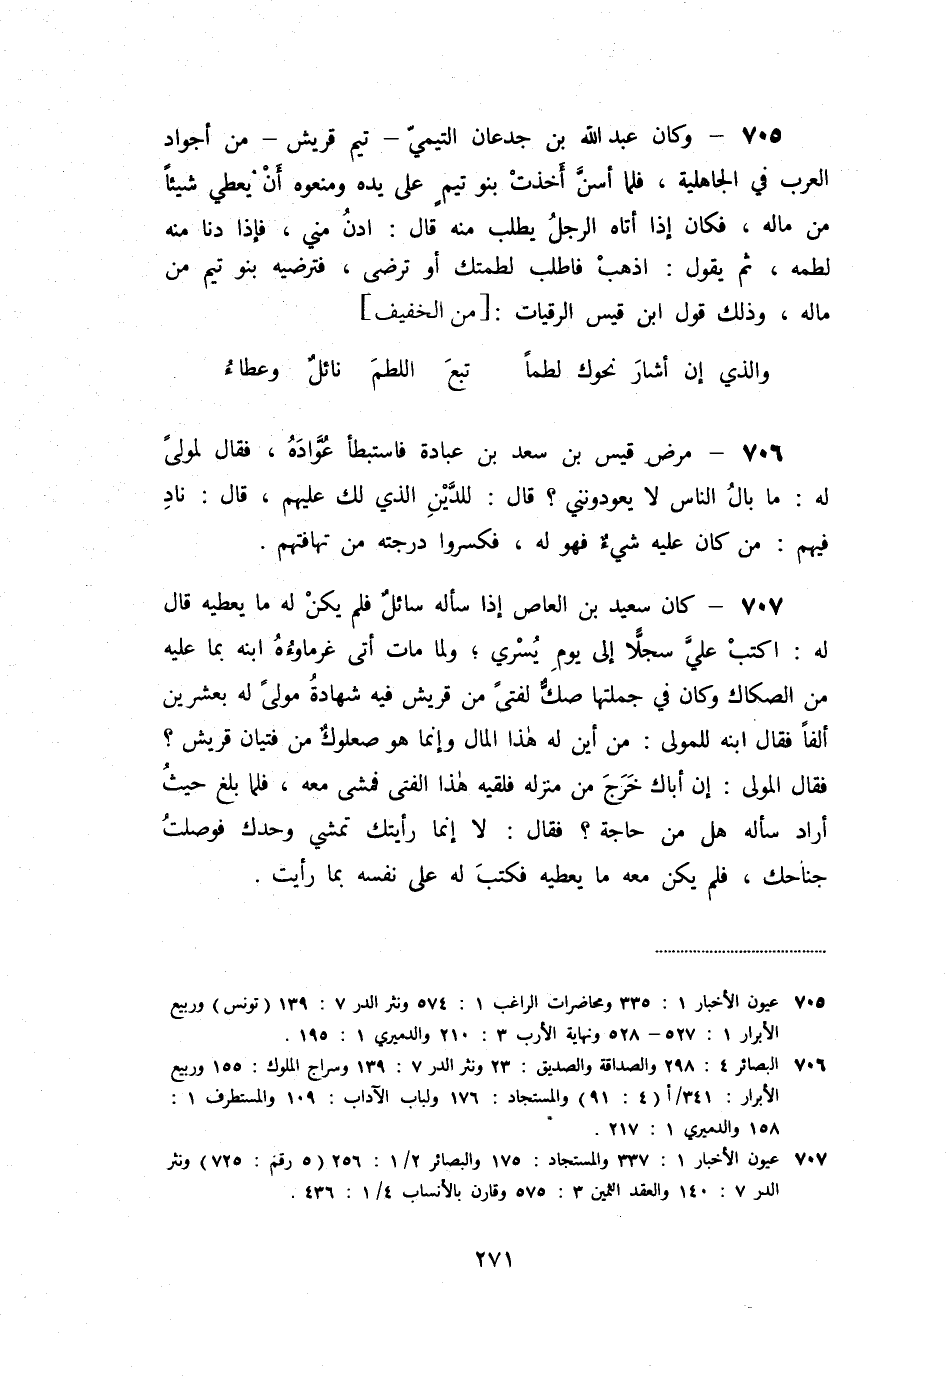 ٧٠٥ – وكان عبد الله بن جدعان التيميّ – تيم قريش – من أجواد
العرب في الجاهلية ، فلما أسنَّ أَخذتْ بنو تيمٍ على يده ومنعوه أَنْ يعطي شيئاً
من ماله ، فكان إذا أتاه الرجلُ يطلب منه قال : ادنُ مني ، فإذا دنا منه
لطمه ، ثم يقول : اذهبْ فاطلب لطمتك أو ترضى ، فترضيه بنو تيم من
ماله ، وذلك قول ابن قيس الرقيات : [من الخفيف]
والذي إن أشارَ نحوك لطماً تبعَ اللطمَ نائلٌ وعطاءُ
٧٠٦ – مرض قيس بن سعد بن عبادة فاستبطأ عُوَّادَهُ ، فقال لمولىً
له : ما بالُ الناس لا يعودونني ؟ قال : للدَّيْنِ الذي لك عليهم ، قال : نادِ
فيهم : من كان عليه شيءٌ فهو له ، فكسروا درجته من تهافتهم .
٧٠٧ – كان سعيد بن العاص إذا سأله سائلٌ فلم يكنْ له ما يعطيه قال
له : اكتبْ عليَّ سجلًّا إلى يومِ يُسْري ؛ ولما مات أتى غرماوءُهُ ابنه بما عليه
من الصكاك وكان في جملتها صكٌّ لفتىً من قريش فيه شهادةُ مولىً له بعشرين
ألفاً فقال ابنه للمولى : من أين له هٰذا المال وإنما هو صعلوكٌ من فتيان قريش ؟
فقال المولى : إن أباك خَرَجَ من منزله فلقيه هٰذا الفتى فمشى معه ، فلما بلغ حيثُ
أراد سأله هل من حاجة ؟ فقال : لا إنما رأيتك تمشي وحدك فوصلتُ
جناحك ، فلم يكن معه ما يعطيه فكتبَ له على نفسه بما رأيت .
٧٠٥ عيون الأخبار ١ : ٣٣٥ ومحاضرات الراغب ١ : ٥٧٤ ونثر الدر ٧ : ١٣٩ (تونس) وربيع
الأبرار ١ : ٥٢٧ – ٥٢٨ ونهاية الأرب ٣ : ٢١٠ والدميري ١ : ١٩٥ .
٧٠٦ البصائر ٤ : ٢٩٨ والصداقة والصديق : ٢٣ ونثر الدر ٧ : ١٣٩ وسراج الملوك : ١٥٥ وربيع
الأبرار : ٣٤١/أ (٤ : ٩١) والمستجاد : ١٧٦ ولباب الآداب : ١٠٩ والمستطرف ١ :
١٥٨ والدميري ١ : ٢١٧ .
٧٠٧ عيون الأخبار ١ : ٣٣٧ والمستجاد : ١٧٥ والبصائر ١/٢ : ٢٥٦ (٥ رقم : ٧٢٥) ونثر
الدر ٧ : ١٤٠ والعقد الثمين ٣ : ٥٧٥ وقارن بالأنساب ١/٤ : ٤٣٦ .
٢٧١